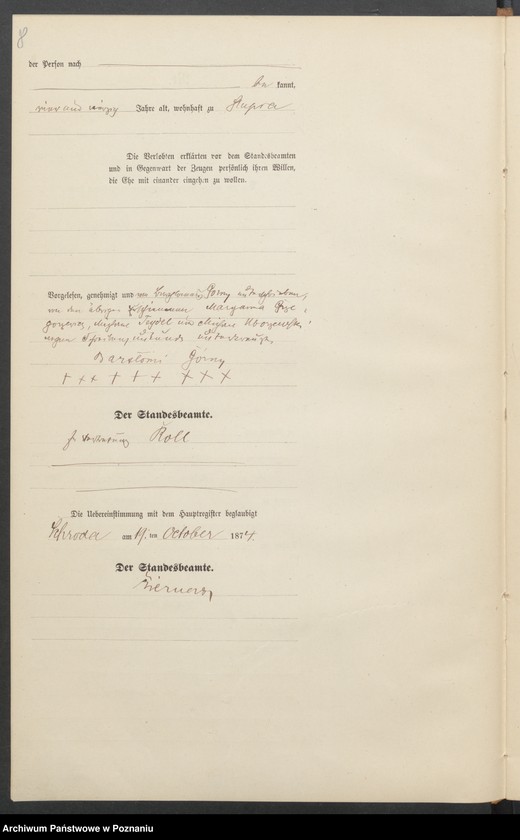 8
der Person nach
be kannt,
vier und vierzig Jahre alt, wohnhaft zu Slupia
Die Verlobten erklärten vor dem Standesbeamten
und in Gegenwart der Zeugen persönlich ihren Willen,
die Ehe mit einander eingehen zu wollen.
Vorgelesen, genehmigt und von Górny unterschrieben,
von den übrigen Erschienenen Maryanna
Michael Seydel und Michael
wegen Schreibensunkunde unterkreuzt
Bartłomi Górny
+ + + + + + + + +
Der Standesbeamte.
In Vertretung Roll
Die Uebereinstimmung mit dem Hauptregister beglaubigt
Schroda am 19. ten October 1874.
Der Standesbeamte.
Archiwum Państwowe w Poznaniu